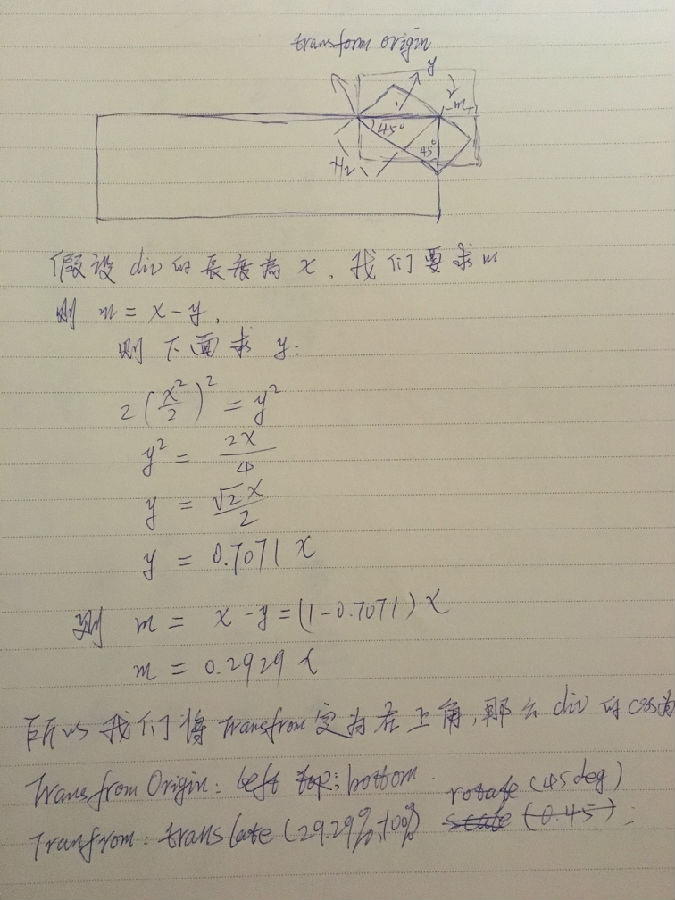 transform origin
y
m
45°
45°
假设 div 的长度为 x, 我们要求 m
则 m = x - y,
则下面求 y.
2 (x²/2)² = y²
y² = 2x/4
y = √2x/2
y = 0.7071 x
则 m = x - y = (1 - 0.7071) x
m = 0.2929 x
所以我们将 Transfrom 定为左上角, 那么 div 的 css 为
Transfrom Origin: left top: bottom
rotate (45deg)
Tranfrom: translate (29.29%, 100%) scale (0.45);